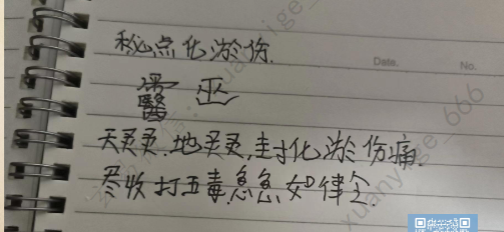 秘点化淤伤.
Date. No.
巫
天灵灵.地灵灵,封化淤伤痛.
尽收打五毒.急急如律令
xuanyige_666